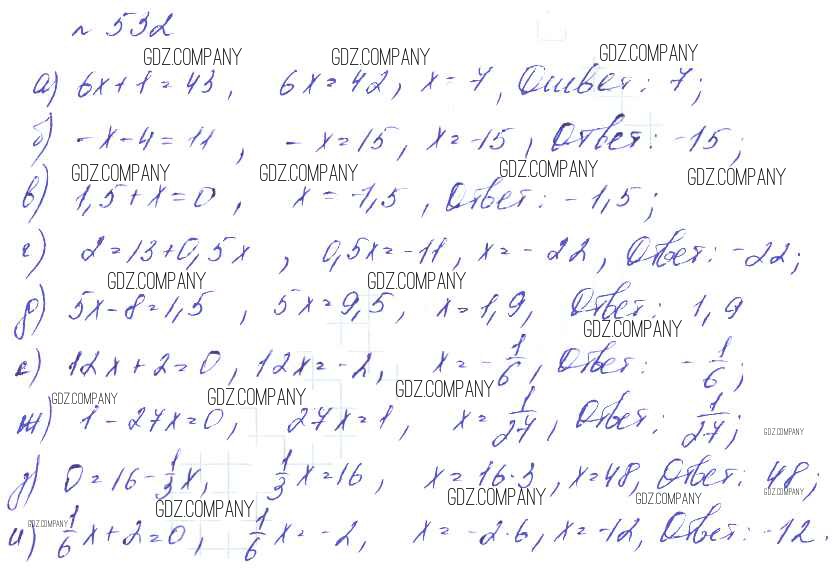 № 532
GDZ.COMPANY GDZ.COMPANY GDZ.COMPANY
а) 6x+1=43, 6x=42, x=7, Ответ: 7;
б) -x-4=11, -x=15, x=-15, Ответ: -15;
GDZ.COMPANY GDZ.COMPANY GDZ.COMPANY GDZ.COMPANY
в) 1,5+x=0, x=-1,5, Ответ: -1,5;
г) 2=13+0,5x, 0,5x=-11, x=-22, Ответ: -22;
GDZ.COMPANY GDZ.COMPANY
д) 5x-8=1,5, 5x=9,5, x=1,9, Ответ: 1,9
GDZ.COMPANY
е) 12x+2=0, 12x=-2, x=-1/6, Ответ: -1/6;
GDZ.COMPANY GDZ.COMPANY GDZ.COMPANY
ж) 1-27x=0, 27x=1, x=1/27, Ответ: 1/27;
GDZ.COMPANY
з) 0=16-1/3x, 1/3x=16, x=16·3, x=48, Ответ: 48;
GDZ.COMPANY GDZ.COMPANY GDZ.COMPANY
GDZ.COMPANY GDZ.COMPANY
и) 1/6x+2=0, 1/6x=-2, x=-2·6, x=-12, Ответ: -12.